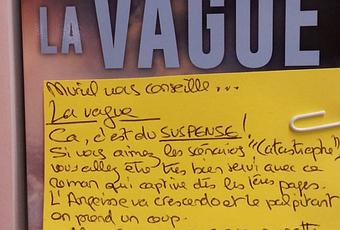 LA VAGUE
Muriel vous conseille...
La vague
Ca, c'est du SUSPENSE !
Si vous aimez les scénarios "Catastrophe"
vous allez être très bien servi avec ce
roman qui captive dès les 1ères pages.
L'Angoisse va crescendo et le palpitant
en prend un coup.